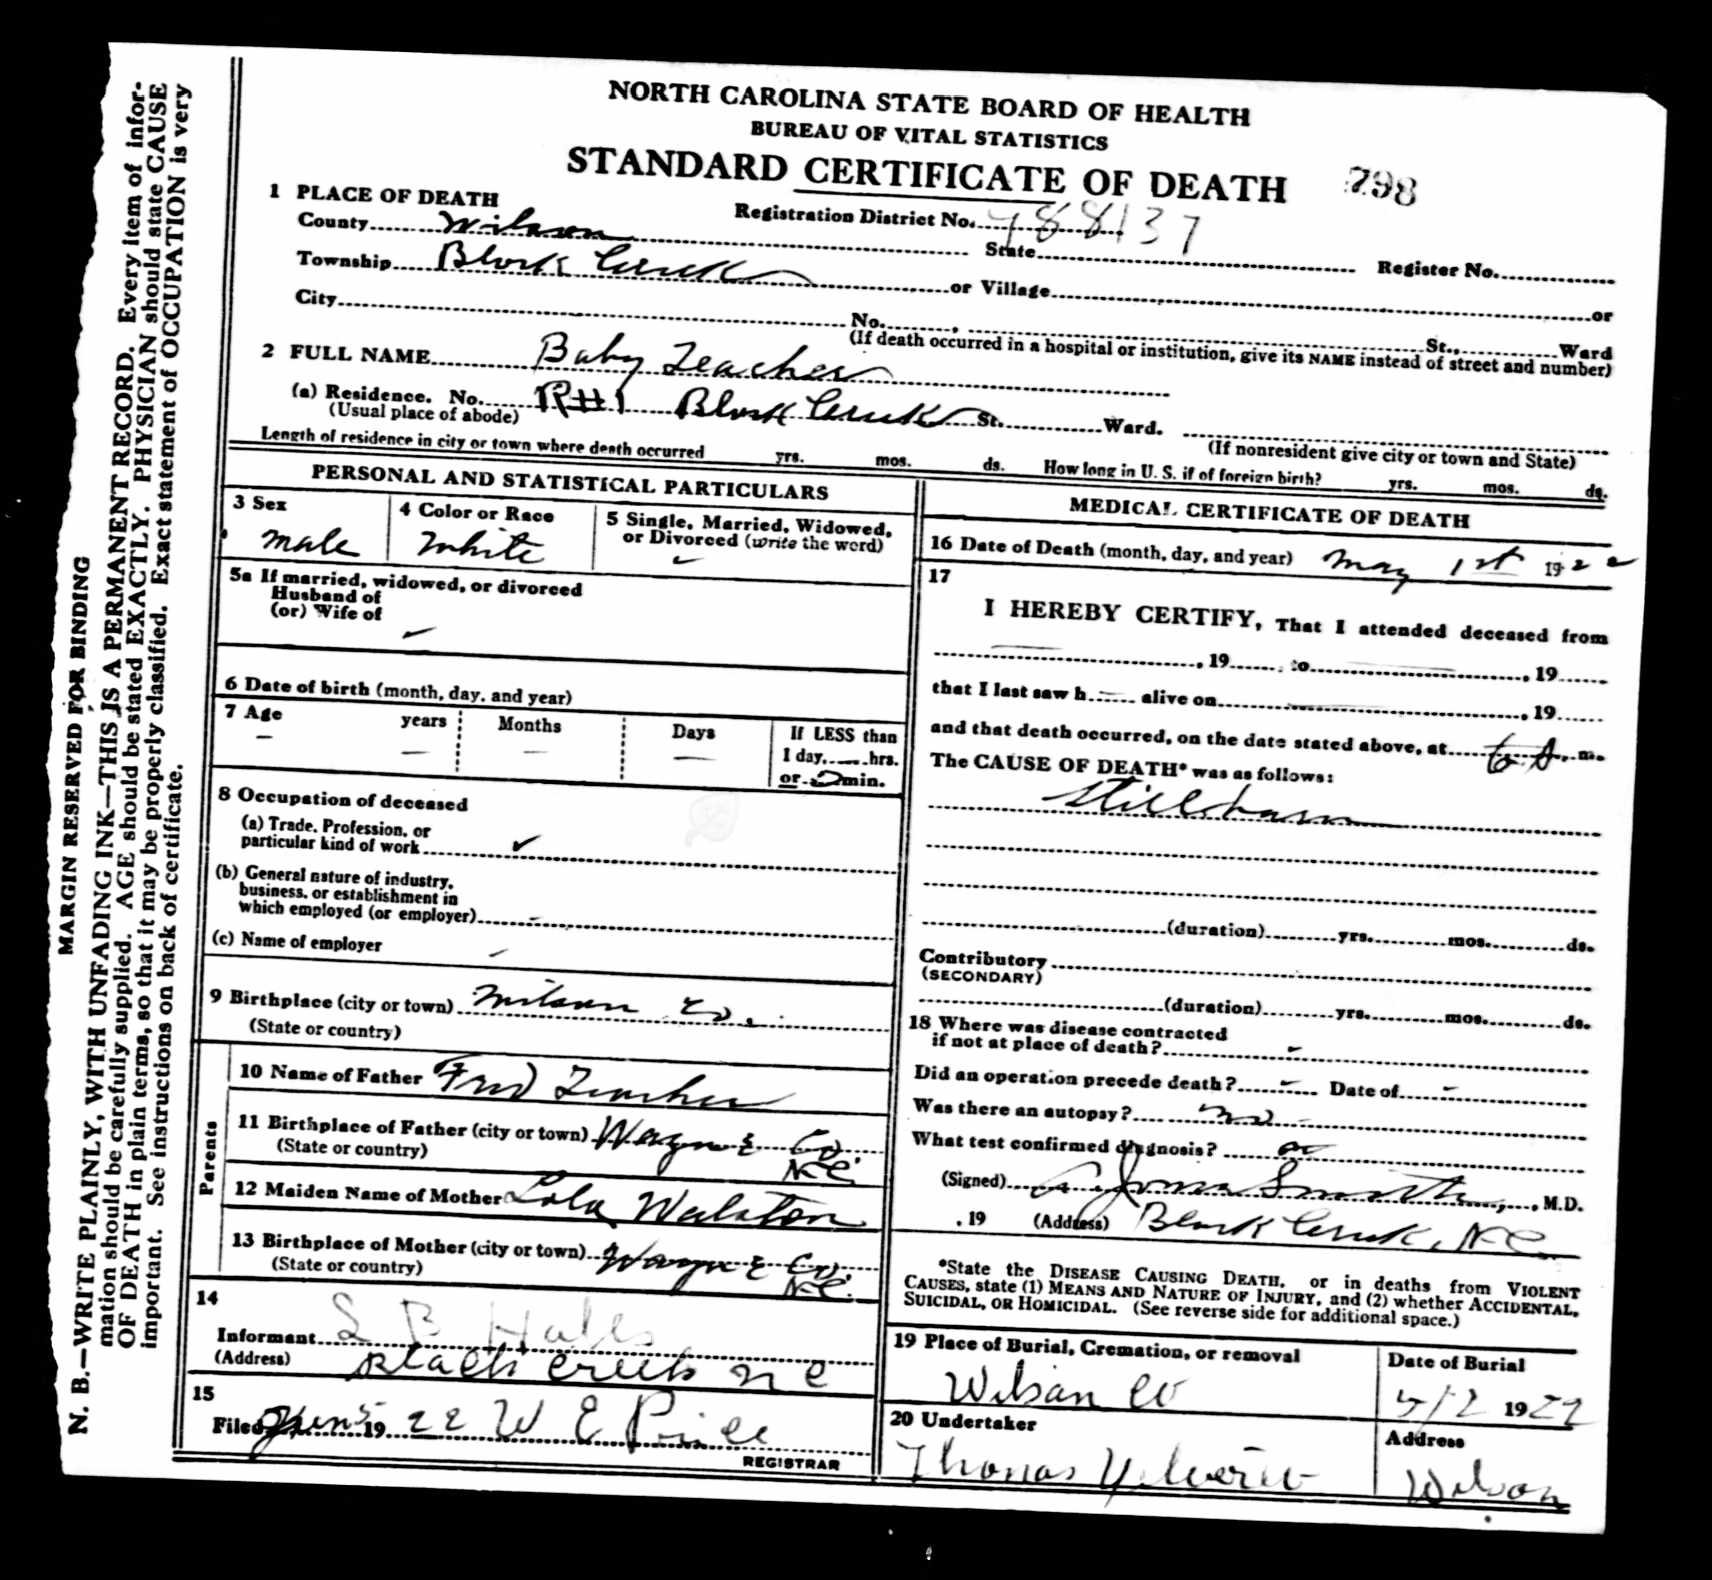 MARGIN RESERVED FOR BINDING
N. B.—WRITE PLAINLY, WITH UNFADING INK—THIS IS A PERMANENT RECORD. Every item of infor-
mation should be carefully supplied. AGE should be stated EXACTLY. PHYSICIAN should state CAUSE
OF DEATH in plain terms, so that it may be properly classified. Exact statement of OCCUPATION is very
important. See instructions on back of certificate.
NORTH CAROLINA STATE BOARD OF HEALTH
BUREAU OF VITAL STATISTICS
STANDARD CERTIFICATE OF DEATH 798
1 PLACE OF DEATH
Registration District No. 988137
County Wilson State Register No.
Township Black Creek or Village or
City No. , St., Ward
(If death occurred in a hospital or institution, give its NAME instead of street and number)
2 FULL NAME Baby Teacher
(a) Residence. No. R#1 Black Creek St. Ward.
(Usual place of abode) (If nonresident give city or town and State)
Length of residence in city or town where death occurred yrs. mos. ds. How long in U. S. if of foreign birth? yrs. mos. ds.
PERSONAL AND STATISTICAL PARTICULARS
3 Sex
male
4 Color or Race
White
5 Single, Married, Widowed,
or Divorced (write the word)
5a If married, widowed, or divorced
Husband of
(or) Wife of
6 Date of birth (month, day, and year)
7 Age years Months Days If LESS than
1 day, hrs.
or min.
8 Occupation of deceased
(a) Trade, Profession, or
particular kind of work
(b) General nature of industry,
business, or establishment in
which employed (or employer)
(c) Name of employer
9 Birthplace (city or town) Wilson Co.
(State or country)
Parents
10 Name of Father Fred Teacher
11 Birthplace of Father (city or town) Wayne Co.
(State or country) N.C.
12 Maiden Name of Mother Lola Walston
13 Birthplace of Mother (city or town) Wayne Co.
(State or country) N.C.
14
Informant L B Hales
(Address) Black Creek N C
15
Filed 19 22 W E Price
REGISTRAR
MEDICAL CERTIFICATE OF DEATH
16 Date of Death (month, day, and year) May 1st 1922
17
I HEREBY CERTIFY, That I attended deceased from
, 19 , to , 19
that I last saw h alive on , 19
and that death occurred, on the date stated above, at 6 A. m.
The CAUSE OF DEATH* was as follows:
Stillborn
(duration) yrs. mos. ds.
Contributory
(SECONDARY)
(duration) yrs. mos. ds.
18 Where was disease contracted
if not at place of death?
Did an operation precede death? Date of
Was there an autopsy? no
What test confirmed diagnosis?
(Signed) Smith, M.D.
, 19 (Address) Black Creek, N.C.
*State the DISEASE CAUSING DEATH, or in deaths from VIOLENT
CAUSES, state (1) MEANS AND NATURE OF INJURY, and (2) whether ACCIDENTAL,
SUICIDAL, OR HOMICIDAL. (See reverse side for additional space.)
19 Place of Burial, Cremation, or removal
Wilson Co
Date of Burial
5/2 1922
20 Undertaker
Thomas Yelverton
Address
Wilson